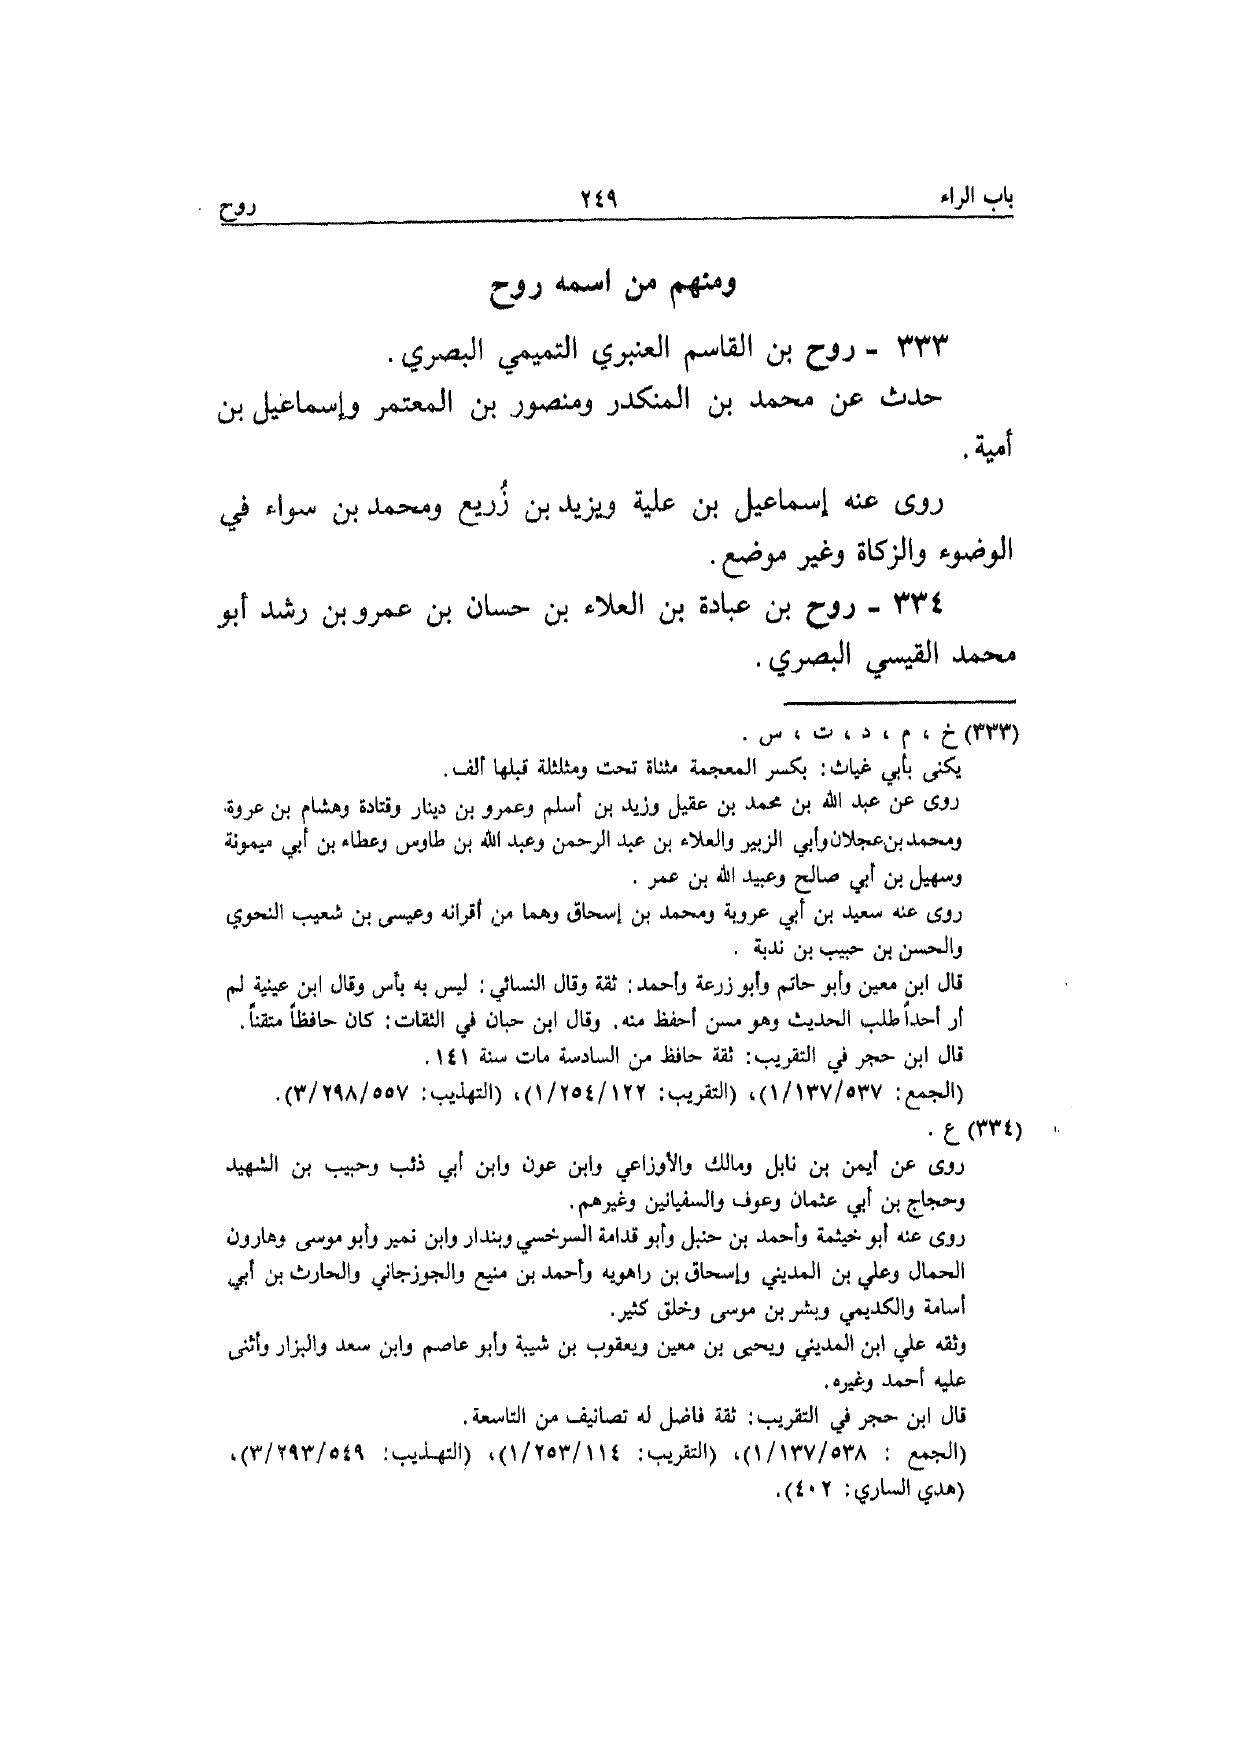 باب الراء ٢٤٩ روح
ومنهم من اسمه روح
٣٣٣ ـ روح بن القاسم العنبري التميمي البصري.
حدث عن محمد بن المنكدر ومنصور بن المعتمر وإسماعيل بن
أمية.
روى عنه إسماعيل بن علية ويزيد بن زُريع ومحمد بن سواء في
الوضوء والزكاة وغير موضع.
٣٣٤ ـ روح بن عبادة بن العلاء بن حسان بن عمرو بن رشد أبو
محمد القيسي البصري.
(٣٣٣) خ ، م ، د ، ت ، س .
يكنى بأبي غياث: بكسر المعجمة مثناة تحت ومثلثة قبلها ألف.
روى عن عبد الله بن محمد بن عقيل وزيد بن أسلم وعمرو بن دينار وقتادة وهشام بن عروة
ومحمد بن عجلان وأبي الزبير والعلاء بن عبد الرحمن وعبد الله بن طاوس وعطاء بن أبي ميمونة
وسهيل بن أبي صالح وعبيد الله بن عمر .
روى عنه سعيد بن أبي عروبة ومحمد بن إسحاق وهما من أقرانه وعيسى بن شعيب النحوي
والحسن بن حبيب بن ندبة .
قال ابن معين وأبو حاتم وأبو زرعة وأحمد: ثقة وقال النسائي: ليس به بأس وقال ابن عينية لم
أر أحداً طلب الحديث وهو مسن أحفظ منه. وقال ابن حبان في الثقات: كان حافظاً متقناً.
قال ابن حجر في التقريب: ثقة حافظ من السادسة مات سنة ١٤١.
(الجمع: ١/١٣٧/٥٣٧)، (التقريب: ١/٢٥٤/١٢٢)، (التهذيب: ٣/٢٩٨/٥٥٧).
(٣٣٤) ع .
روى عن أيمن بن نابل ومالك والأوزاعي وابن عون وابن أبي ذئب وحبيب بن الشهيد
وحجاج بن أبي عثمان وعوف والسفيانين وغيرهم.
روى عنه أبو خيثمة وأحمد بن حنبل وأبو قدامة السرخسي وبندار وابن نمير وأبو موسى وهارون
الحمال وعلي بن المديني وإسحاق بن راهويه وأحمد بن منيع والجوزجاني والحارث بن أبي
أسامة والكديمي وبشر بن موسى وخلق كثير.
وثقه علي ابن المديني ويحيى بن معين ويعقوب بن شيبة وأبو عاصم وابن سعد والبزار وأثنى
عليه أحمد وغيره.
قال ابن حجر في التقريب: ثقة فاضل له تصانيف من التاسعة.
(الجمع : ١/١٣٧/٥٣٨)، (التقريب: ١/٢٥٣/١١٤)، (التهذيب: ٣/٢٩٣/٥٤٩)،
(هدي الساري: ٤٠٢).